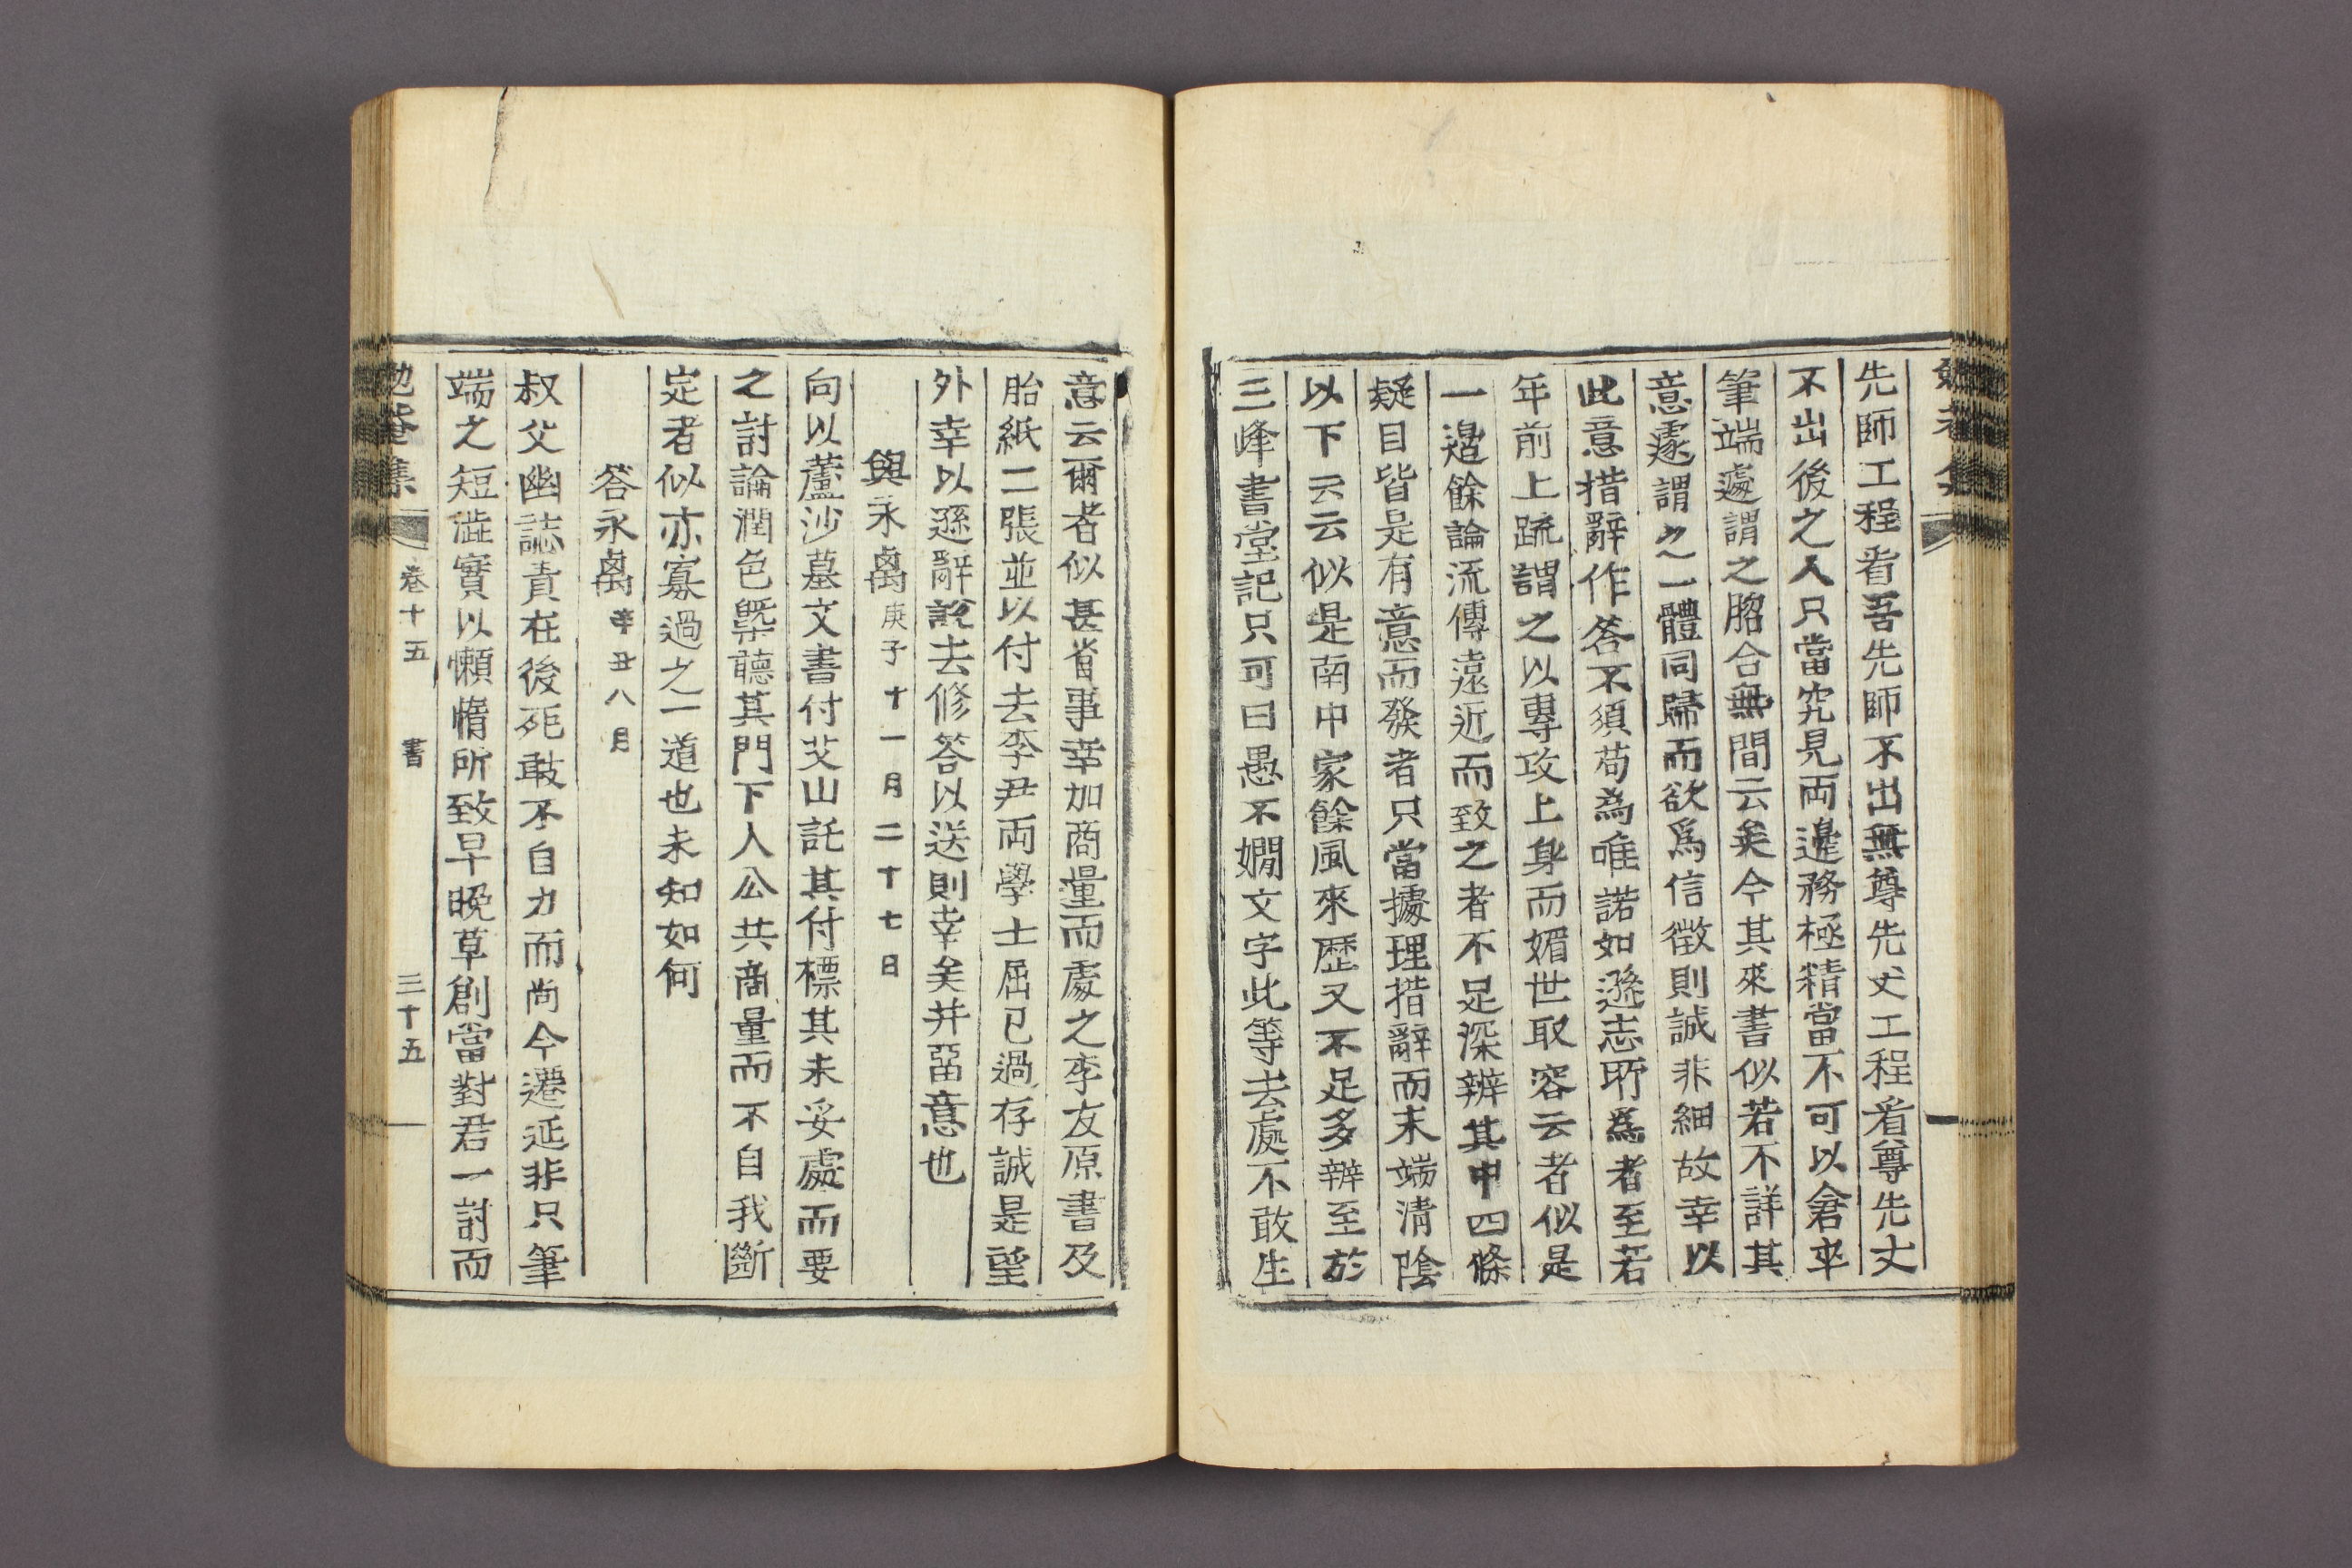 先師工程看吾先師不出無尊先丈工程看尊先丈
不出後之人只當究見両邊務極精當不可以倉卒
筆端遽謂之脗合無間云矣今其來書似若不詳其
意遽謂之一體同歸而欲爲信徵則誠非細故幸以
此意措辭作答不須苟爲唯諾如遜志所爲者至若
年前上疏謂之以專攻上身而媚世取容云者似是
一邊餘論流傳遠近而致之者不足深辨其中四條
疑目皆是有意而發者只當據理措辭而末端淸陰
以下云云似是南中家餘風來歷又不足多辨至於
三峰書堂記只可曰愚不嫺文字此等去處不敢生
意云爾者似甚省事幸加商量而處之李友原書及
胎紙二張並以付去李尹両學士屈已過存誠是望
外幸以遜辭說去修答以送則幸矣幷盃意也
與永卨庚子十一月二十七日
向以蘆沙墓文書付艾山託其付標其未妥處而要
之討論潤色槩聽其門下人公共商量而不自我斷
定者似亦寡過之一道也未知如何
答永卨辛丑八月
叔父幽誌責在後死敢不自力而尚今遷延非只筆
端之短澁實以懶惰所致早晚草創當對君一討而
勉菴集 卷十五 書 三十五